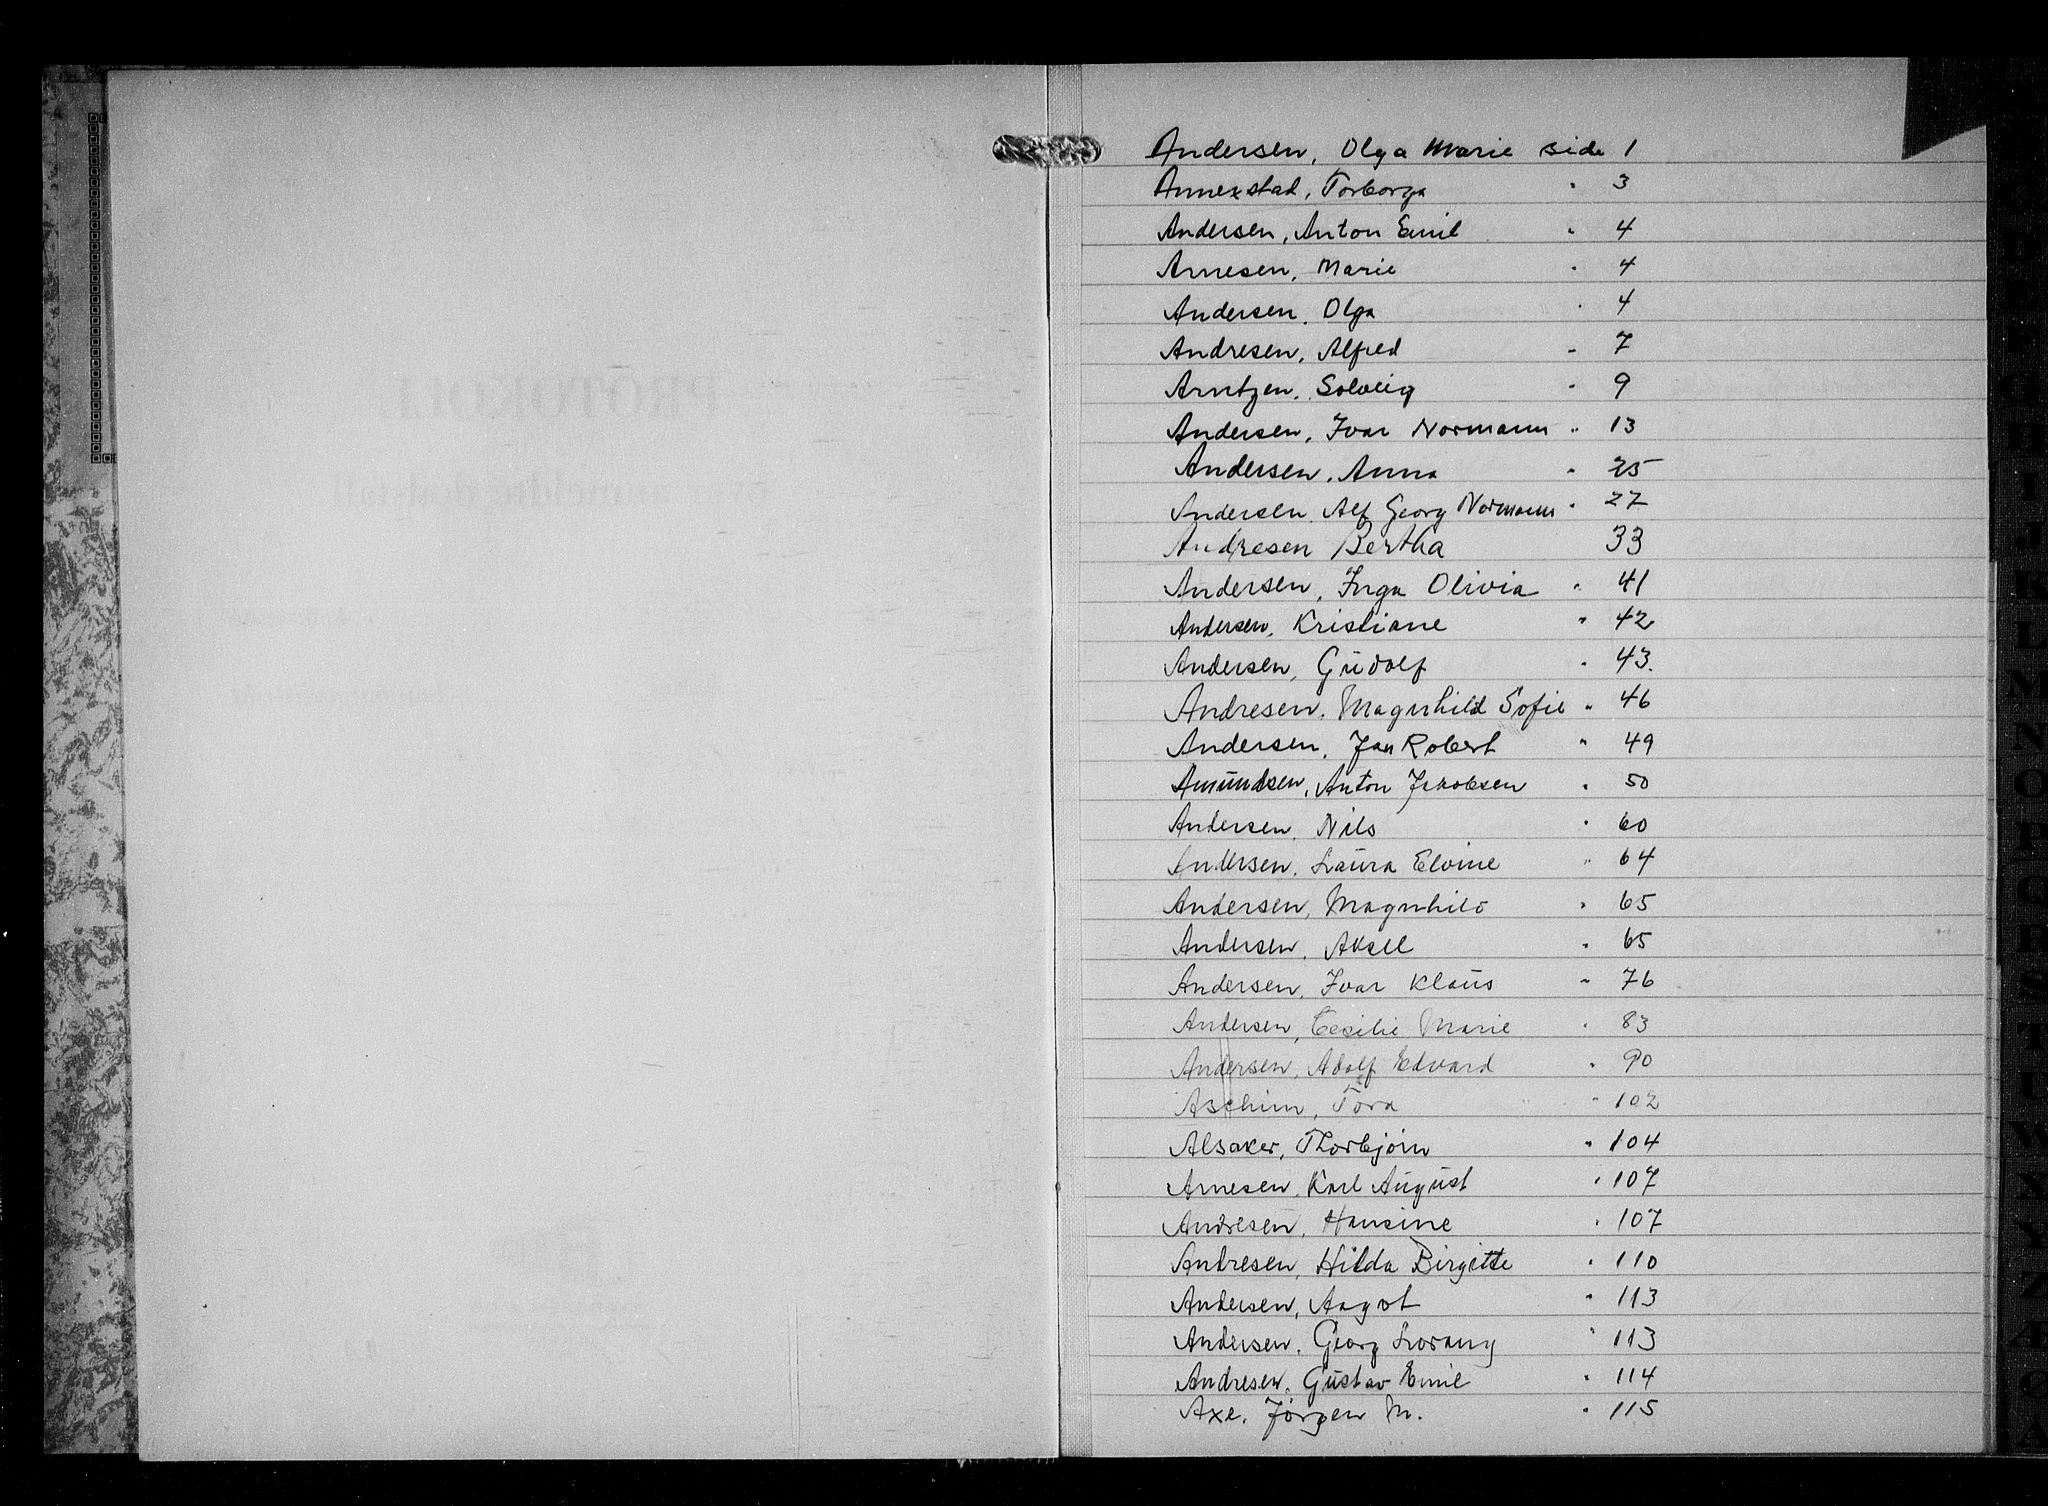 Andersen, Olga Marie side 1
Annexstad, Torborga " 3
Andersen, Anton Emil " 4
Arnesen, Marie " 4
Andersen, Olga " 4
Andresen, Alfred " 7
Arntzen, Solveig " 9
Andersen, Ivar Normann " 13
Andersen, Anna " 25
Andersen, Alf Georg Normann " 27
Andresen Bertha 33
Andersen, Inga Olivia " 41
Andersen, Kristiane " 42
Andersen, Gudolf " 43.
Andresen, Magnhild Sofie " 46
Andersen, Jan Robert " 49
Amundsen, Anton Jakobsen " 50
Andersen, Nils " 60
Andersen, Laura Elvine " 64
Andersen, Magnhild " 65
Andersen, Aksel " 65
Andersen, Ivar Klaus " 76
Andersen, Cesilie Marie " 83
Andersen, Adolf Edvard " 90
Aschim, Tora " 102
Alsaker, Thorbjørn " 104
Arnesen, Karl August " 107
Andresen, Hansine " 107
Andresen, Hilda Birgitte " 110
Andersen, Aagot " 113
Andersen, Georg Lorang " 113
Andresen, Gustav Emil " 114
Axe, Jørgen M. " 115